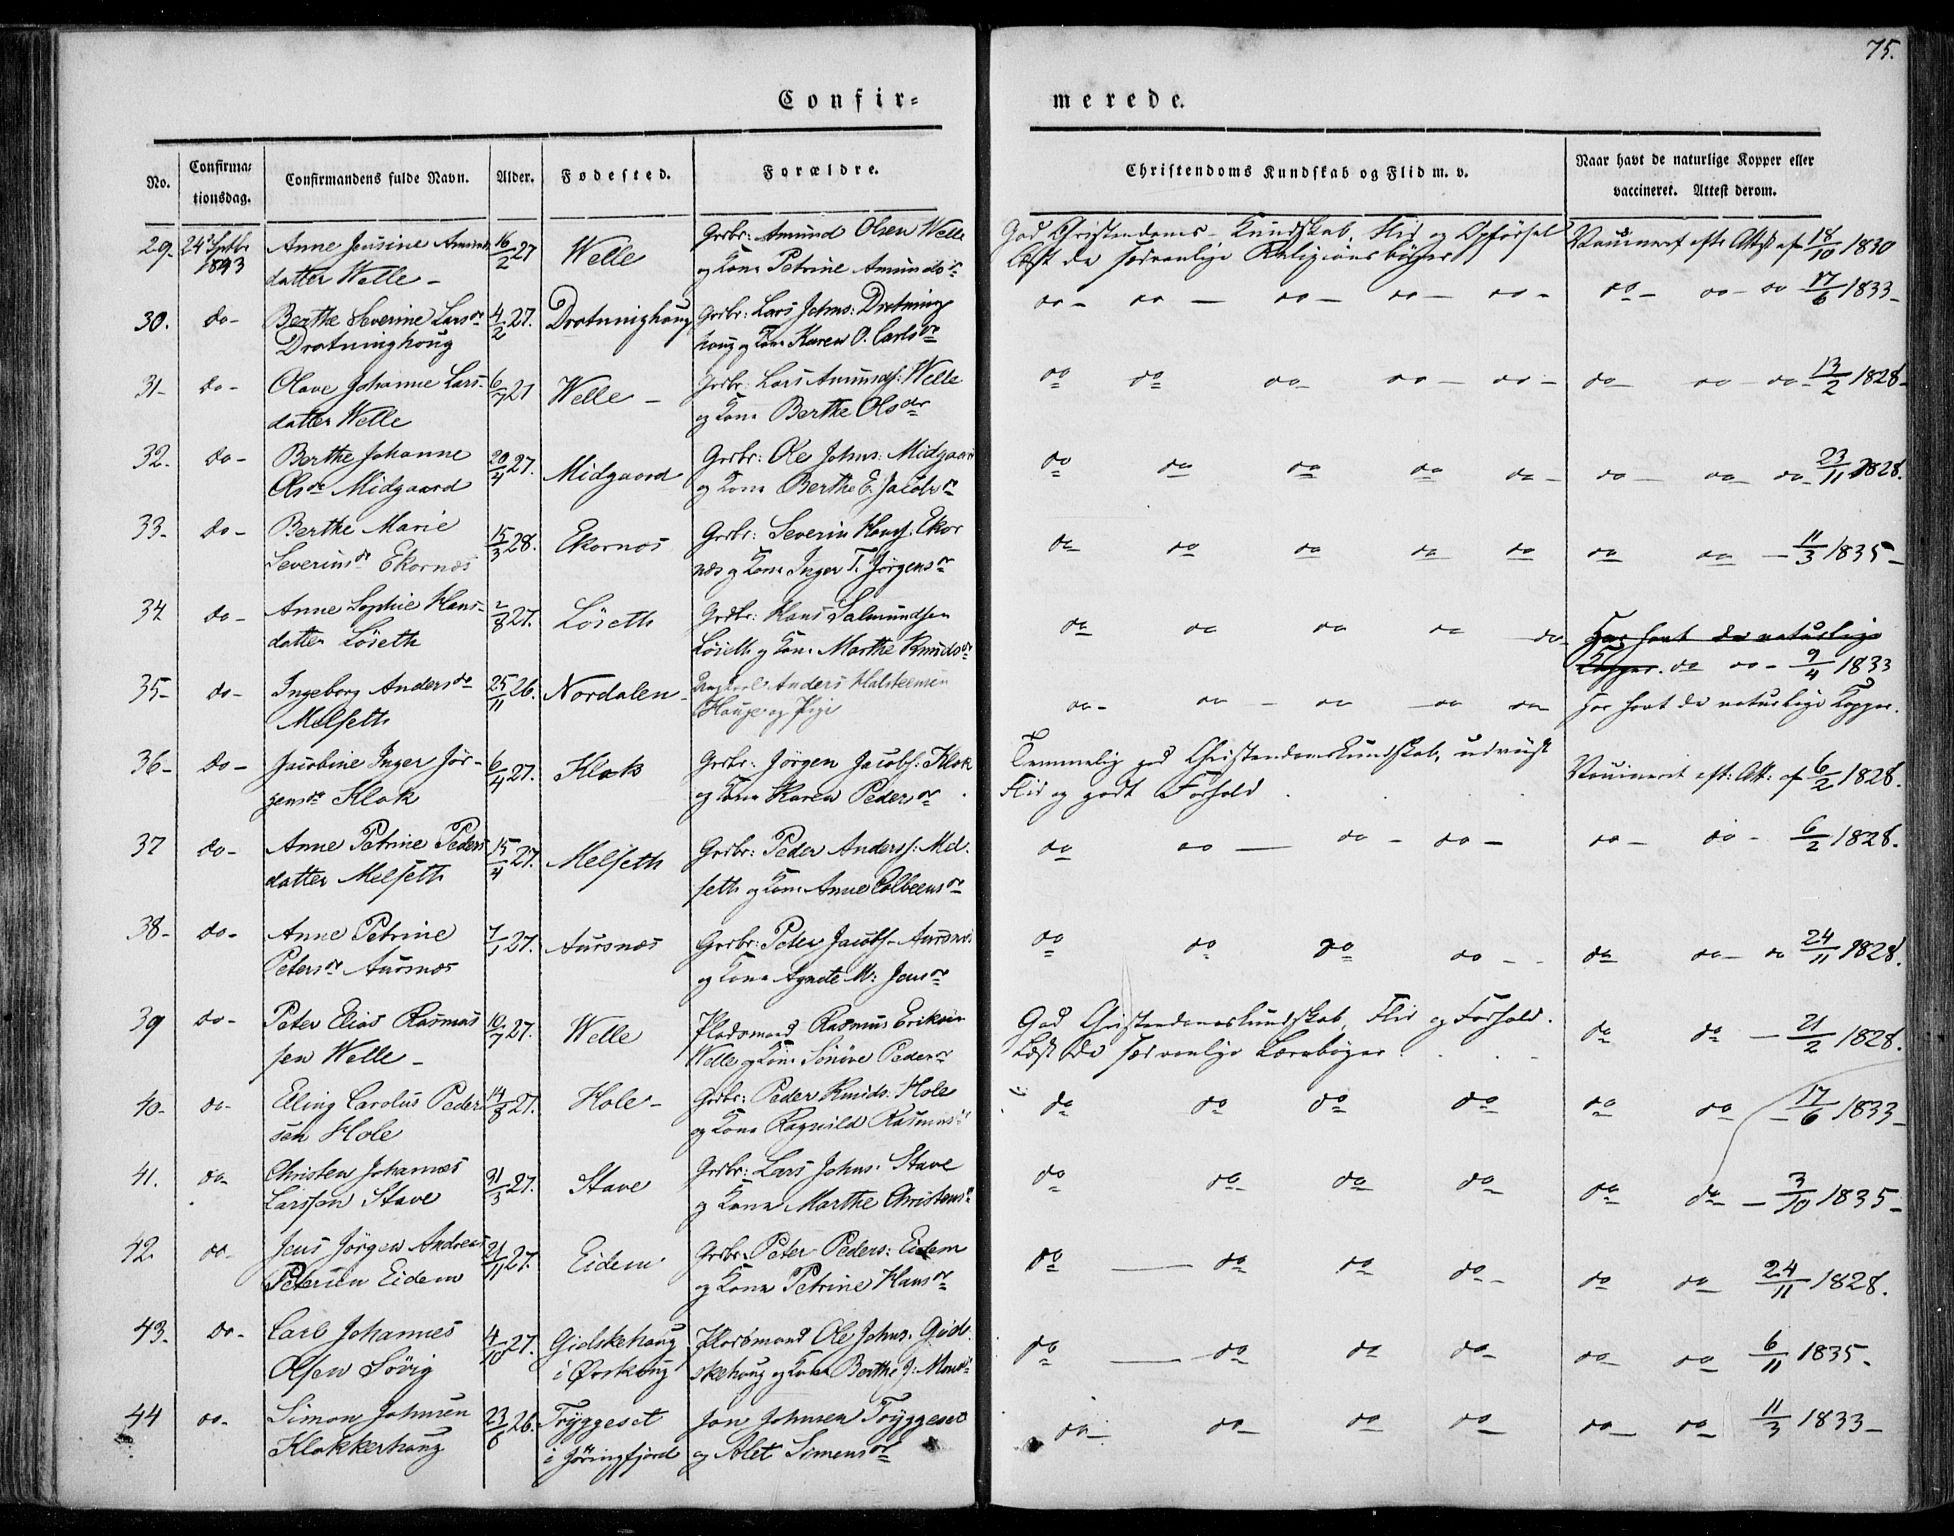 75.
Confir-
merede.
No.
Confirma-
tionsdag.
Confirmandens fulde Navn.
Alder.
Fødested.
Forældre.
Christendoms Kundskab og Flid m. v.
Naar havt de naturlige Kopper eller
vaccineret. Attest derom.
29. 24 Sptbr 1843 Anne Jensine Amunds
datter Welle -
16/2 27 Welle
Grbr: Amund Olsen Welle
og Kone Petrine Amundsdr
God Christendoms-Kundskab, Flid og Opførsel
Læst de sædvanlige Religionsbøger
Vaccineret efter Attest af 18/10 1830
30. do- Berthe Severine Larsdr
Drotninghoug
4/2 27. Drotninghoug
Grbr: Lars Johns: Drotning
houg og Kone Karen O. Carlsdr
do- do - do- do- do- do- do- do 17/6 1833-
31- do- Olave Johanne Lars-
datter Welle
6/7 27 Welle -
Grbr: Lars Amunds: Welle
og Kone Berthe Olsdr
do do do do - do - do- do- do- 13/2 1828-
32. do- Berthe Johanne
Olsdr Midgaard
20/4 27. Midgaard
Grbr: Ole Johns: Midgaar
og Kone Berthe E. Jacobsdr
do do do do do- do- do- do- 23/11 1828.
33- do- Berthe Marie
Severinsdr Ekornæs
15/3 28. Ekornæs
Grbr: Severin Hans: Ekor
næs og Kone Inger T. Jørgensdr
do do do do do do do - 11/3 1835-
34 do- Anne Sophie Hans-
datter Løseth
2/8 27. Løseth
Grbr: Hans Salmundsen
Løseth og Kone Marthe Knudsdr
do do do do do- Har havt de naturlige
Kopper. do do- 9/4 1833
35- do- Ingeborg Andersdr
Melseth
25/11 26. Nordalen-
Ungkarl Anders Halsteensen
Hauge og Pige
do- do - do - do do- Har havt de naturlige Kopper.
36- do- Jacobine Inger Jør-
gensdr Klok
6/4 27. Klok
Grbr: Jørgen Jacobs: Klok
og Kone Karen Pedersdr
Temmelig god Christendomskundskab, udviist
Flid og godt Forhold
Vaccineret eft: Att: af 6/2 1828.
37 do- Anne Petrine Peders
datter Melseth
15/4 27. Melseth
Grbr: Peder Anders: Mel-
seth og Kone Anne Colbeensdr
do do - do- do- do- do- 6/2 1828.
38- do- Anne Petrine
Petersdr Aursnæs
7/1 27. Aursnæs
Grbr: Peter Jacobs- Aursnæs
og Kone Agnete M: Jensdr
do do do do- - do do- do 24/11 1828.
39 do- Peter Elias Rasmus
sen Welle -
10/7 27. Welle
Pladsmand Rasmus Eriksen
Welle og Kone Sinøve Pedersdr
God Christendomskundskab, Flid og Forhold.
Læst de sædvanlige Lærebøger.
do do - 21/2 1828.
40- do- Elling Carolus Peder
sen Hole
14/8 27. Hole-
Grbr: Peder Knuds: Hole
og Kone Ragnild Rasmusdr
do do do do do do - 17/6 1833-
41. do- Christen Johannes
Larssen Stave
31/3 27. Stave
Grbr: Lars Johns: Stave
og Kone Marthe Christensdr
do do- do- do- do do - 3/10 1835-
42. do- Jens Jørgen Andreas
Petersen Eidem
21/11 27. Eidem
Grbr: Peter Peders: Eidem
og Kone Petrine Hansdr
do - do do do- do do 24/11 1828.
43. do- Carl Johannes
Olsen Søvig
4/10 27. Gidskehoug
i Ørskoug
Pladsmand Ole Johns. Gids-
skehoug og Kone Berthe J: Monsdr
do - do do do- do do 6/11 1835-
44 do- Simon Johnsen
Klokkerhoug
23/6 26. Tryggeset
i Jøringfjord
Jon Johnsen Tryggeset
og Alet Simensdr
do- do do do- do do 11/3 1833-